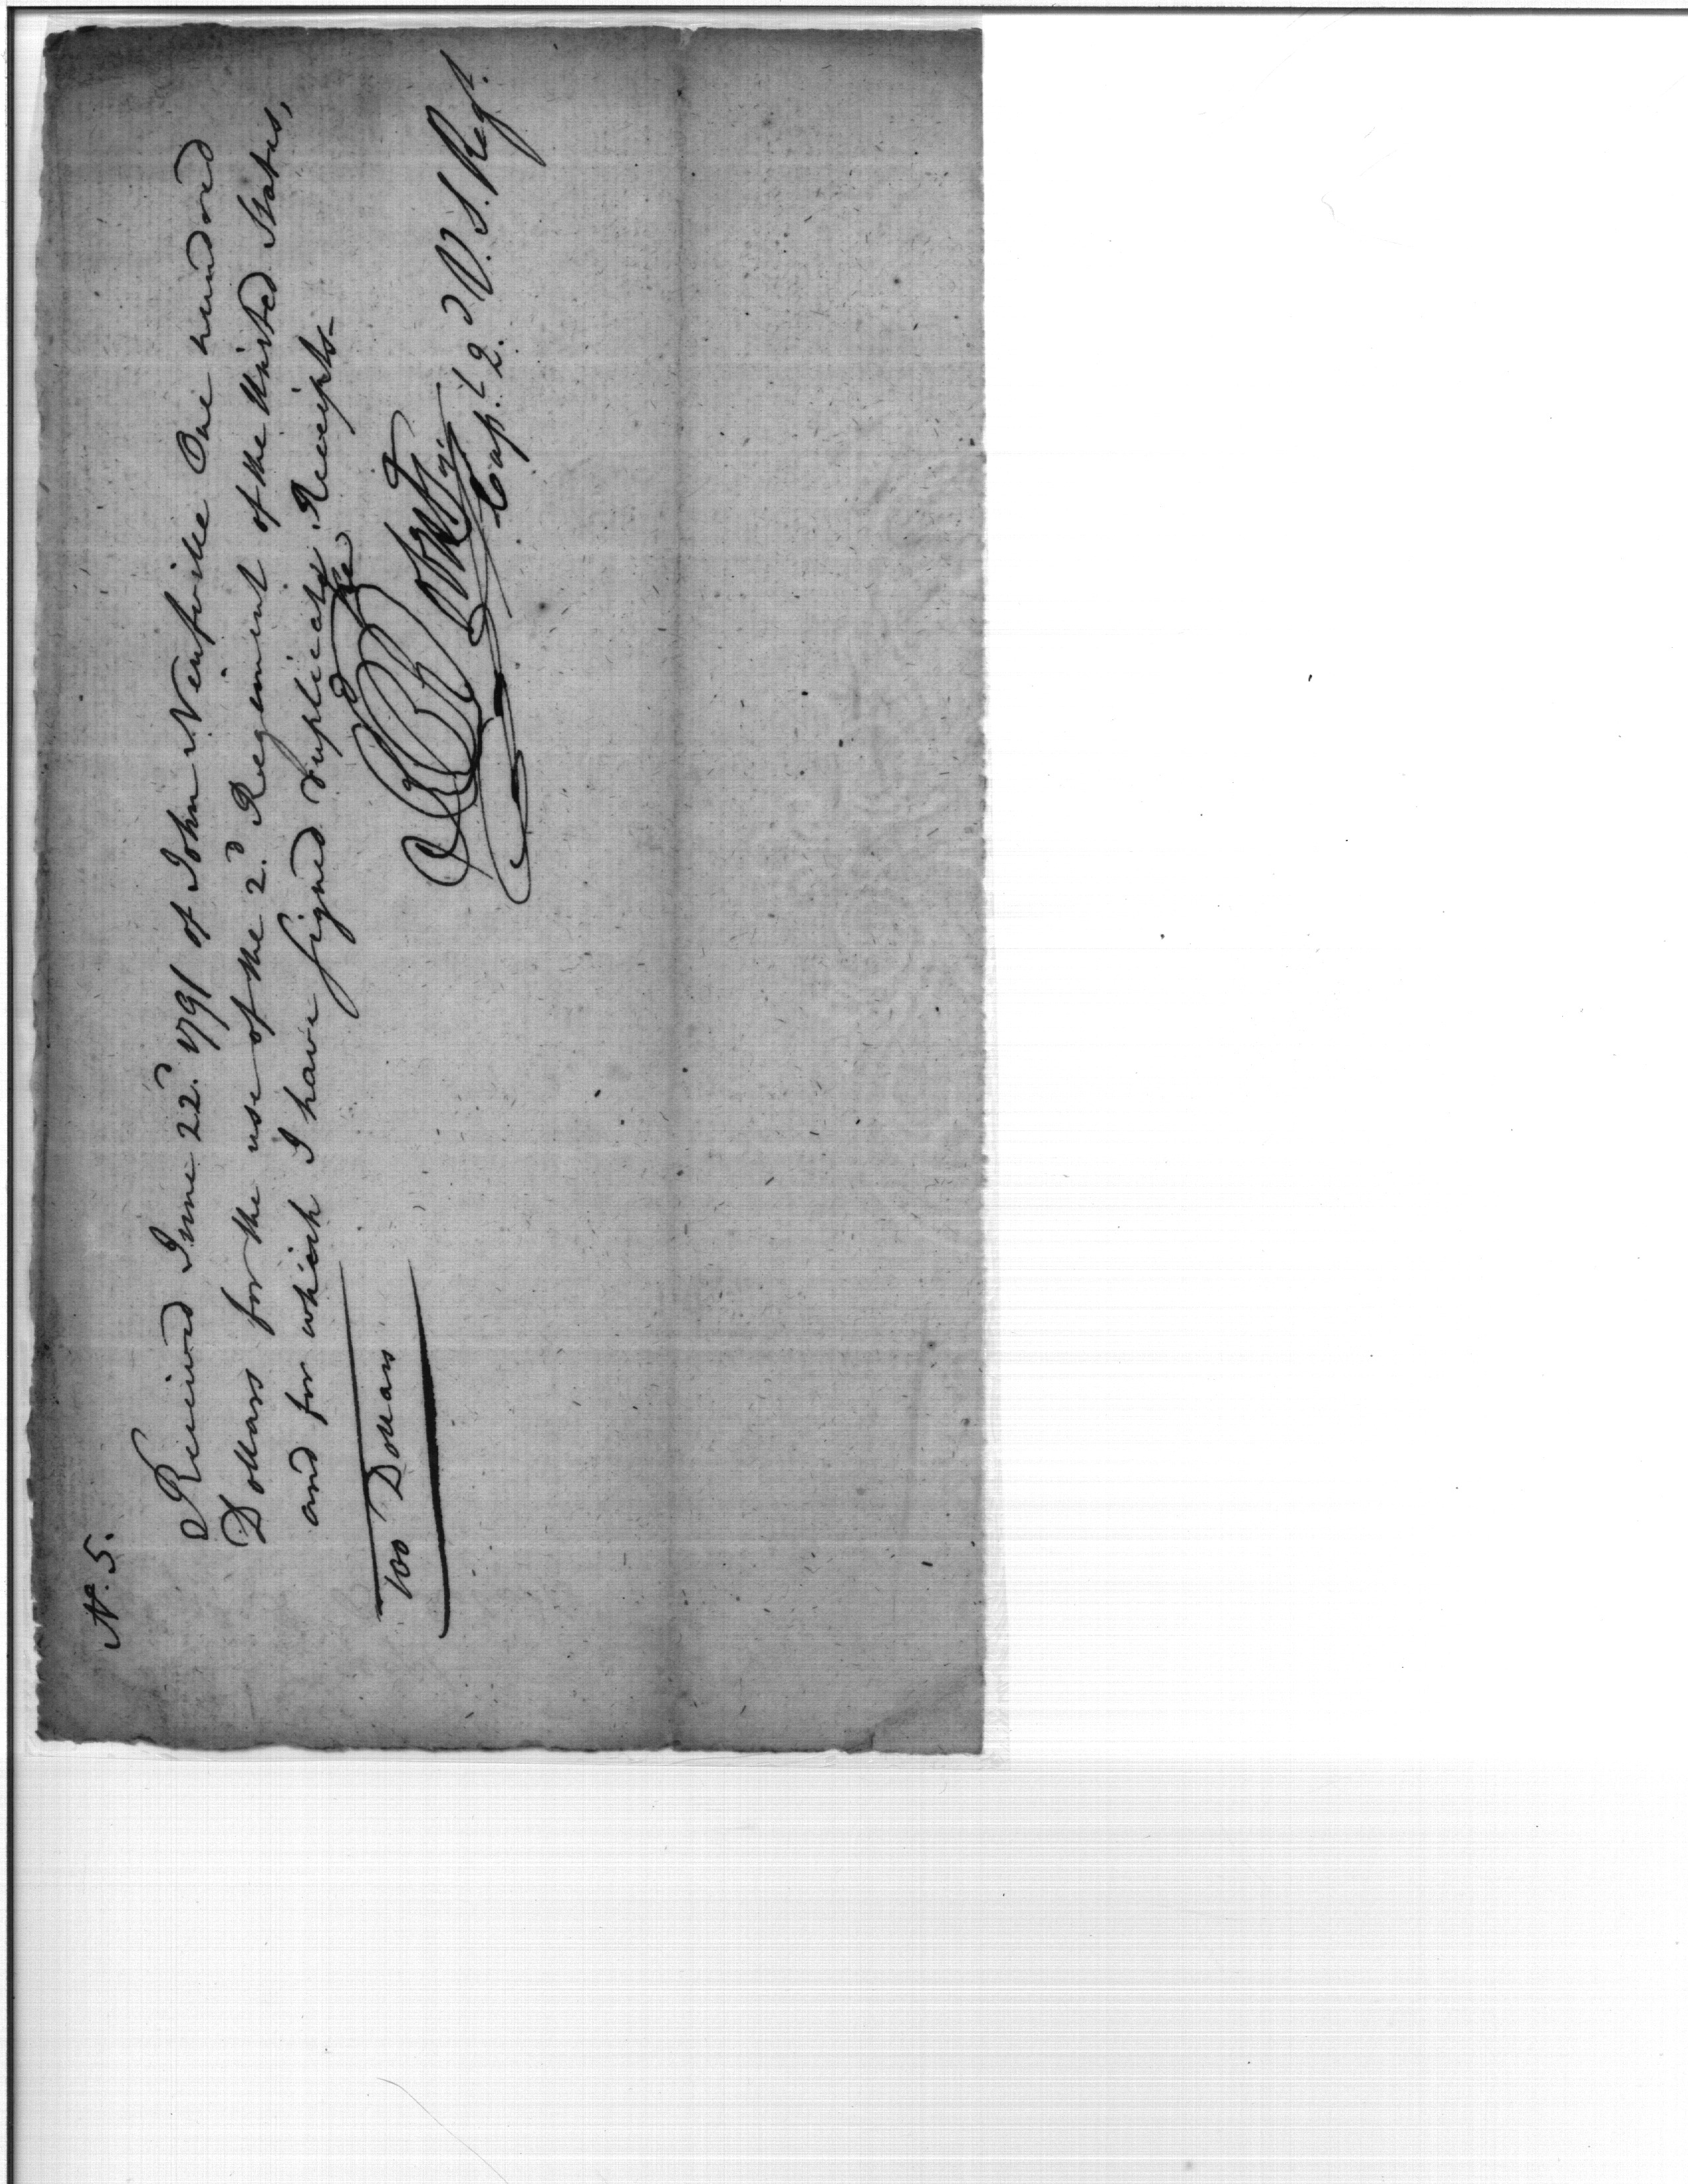 N.º 5.
Received June 22.d 1791 of John Neufville One hundred
Dollars for the use of the 2.d Regement of the United States,
and for which I have signed duplicate Receipts_
100 Dollars
Cap.t 2.d U. S. Reg.t